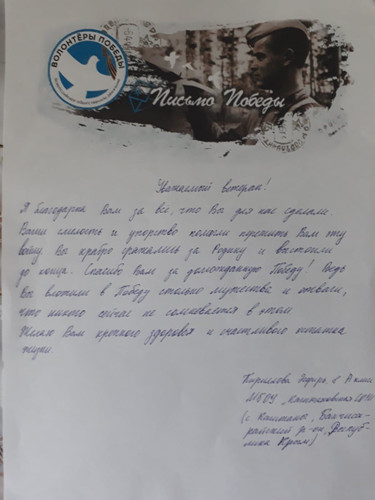 ВОЛОНТЁРЫ ПОБЕДЫ
Письмо Победы
Уважаемый ветеран!
Я благодарна Вам за все, что Вы для нас сделали.
Ваша смелость и упорство помогли пережить Вам эту
войну. Вы храбро сражались за Родину и выстояли
до конца. Спасибо Вам за долгожданную Победу! Ведь
Вы вложили в Победу столько мужества и отваги,
что никто сейчас не сомневается в этом.
Желаю Вам крепкого здоровья и счастливого остатка
жизни.
Кириллова Эвира, 6 А класс
МБОУ "Каштановская СОШ"
(с. Каштаны, Бахчиса-
райский р-он, Респуб-
лика Крым)